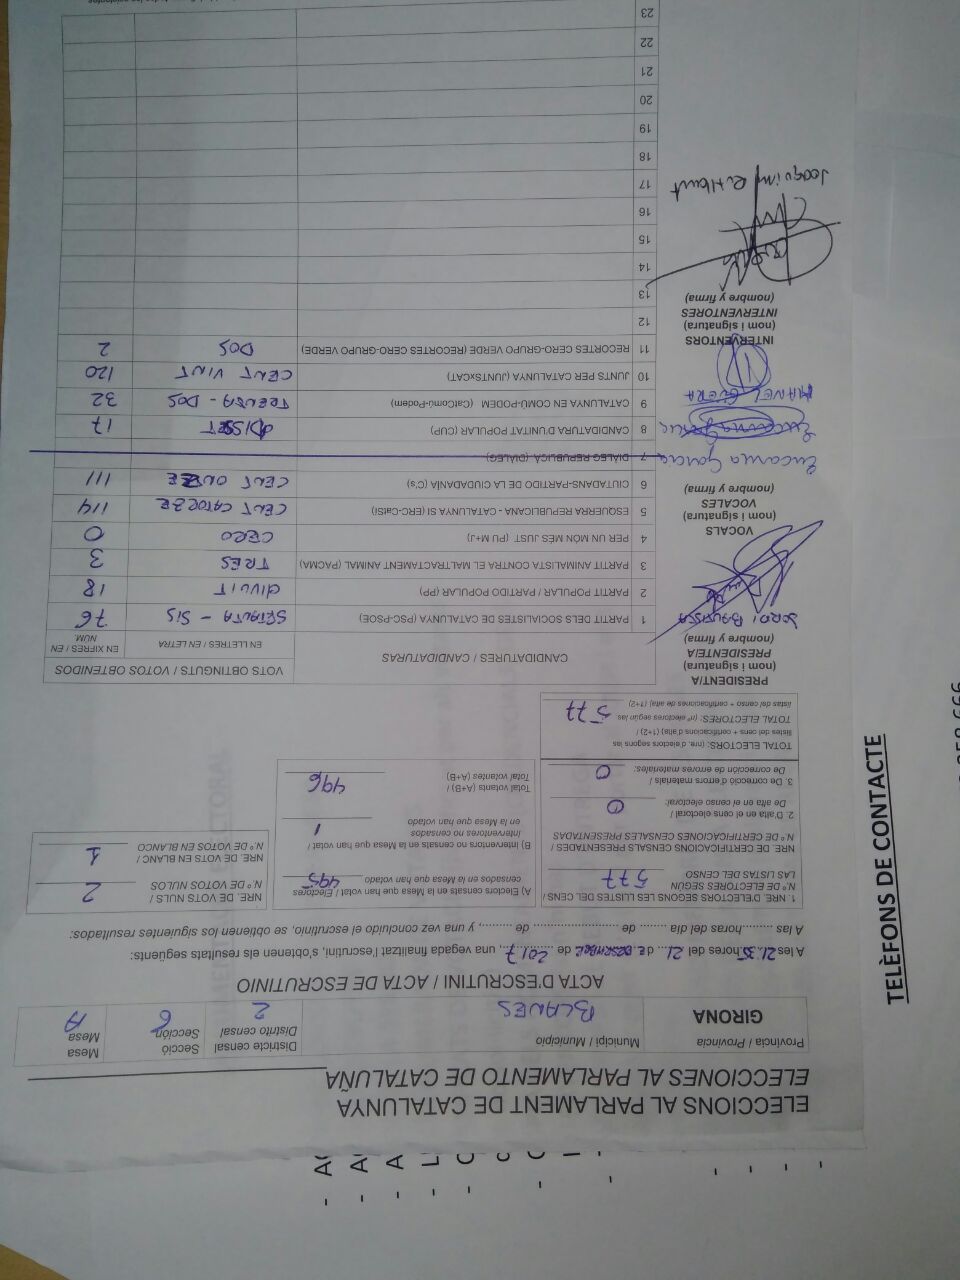 TELÈFONS DE CONTACTE
ELECCIONS AL PARLAMENT DE CATALUNYA
ELECCIONES AL PARLAMENTO DE CATALUÑA
Província / Provincia
GIRONA
Municipi / Municipio
BLANES
Districte censal
Distrito censal
2
Secció
Sección
6
Mesa
Mesa
A
ACTA D'ESCRUTINI / ACTA DE ESCRUTINIO
A les 21.35 hores del 21 de DESEMBRE de 2017, una vegada finalitzat l'escrutini, s'obtenen els resultats següents:
A las .........horas del día ........ de ......................... de ........., y una vez concluido el escrutinio, se obtienen los siguientes resultados:
1. NRE. D'ELECTORS SEGONS LES LLISTES DEL CENS /
N.º DE ELECTORES SEGÚN
LAS LISTAS DEL CENSO 577
NRE. DE CERTIFICACIONS CENSALS PRESENTADES /
N.º DE CERTIFICACIONES CENSALES PRESENTADAS
2. D'alta en el cens electoral /
De alta en el censo electoral: 0
3. De correcció d'errors materials /
De corrección de errores materiales: 0
TOTAL ELECTORS: (nre. d'electors segons les
llistes del cens + certificacions d'alta) (1+2) /
TOTAL ELECTORES: (nº electores según las
listas del censo + certificaciones de alta) (1+2) 577
A) Electors censats en la Mesa que han votat / Electores
censados en la Mesa que han votado 495
B) Interventors no censats en la Mesa que han votat /
Interventores no censados
en la Mesa que han votado 1
Total votants (A+B) /
Total votantes (A+B) 496
NRE. DE VOTS NULS /
N.º DE VOTOS NULOS 2
NRE. DE VOTS EN BLANC /
N.º DE VOTOS EN BLANCO 1
PRESIDENT/A
(nom i signatura)
PRESIDENTE/A
(nombre y firma)
JORDI BAUTISSA
VOCALS
(nom i signatura)
VOCALES
(nombre y firma)
Encarna García
Encarna García
MANEL GÜERA
INTERVENTORS
(nom i signatura)
INTERVENTORES
(nombre y firma)
Joaquim
CANDIDATURES / CANDIDATURAS
VOTS OBTINGUTS / VOTOS OBTENIDOS
EN LLETRES / EN LETRA
EN XIFRES / EN NÚM.
1 PARTIT DELS SOCIALISTES DE CATALUNYA (PSC-PSOE) SETANTA - SIS 76
2 PARTIT POPULAR / PARTIDO POPULAR (PP) DIVUIT 18
3 PARTIT ANIMALISTA CONTRA EL MALTRACTAMENT ANIMAL (PACMA) TRES 3
4 PER UN MÓN MÉS JUST (PU M+J) CERO 0
5 ESQUERRA REPUBLICANA - CATALUNYA SI (ERC-CatSí) CENT CATORZE 114
6 CIUTADANS-PARTIDO DE LA CIUDADANÍA (C's) CENT ONZE 111
7 DIÀLEG REPUBLICÀ (DIÀLEG)
8 CANDIDATURA D'UNITAT POPULAR (CUP) DISSET 17
9 CATALUNYA EN COMÚ-PODEM (CatComú-Podem) TRENTA - DOS 32
10 JUNTS PER CATALUNYA (JUNTSxCAT) CENT VINT 120
11 RECORTES CERO-GRUPO VERDE (RECORTES CERO-GRUPO VERDE) DOS 2
12
13
14
15
16
17
18
19
20
21
22
23